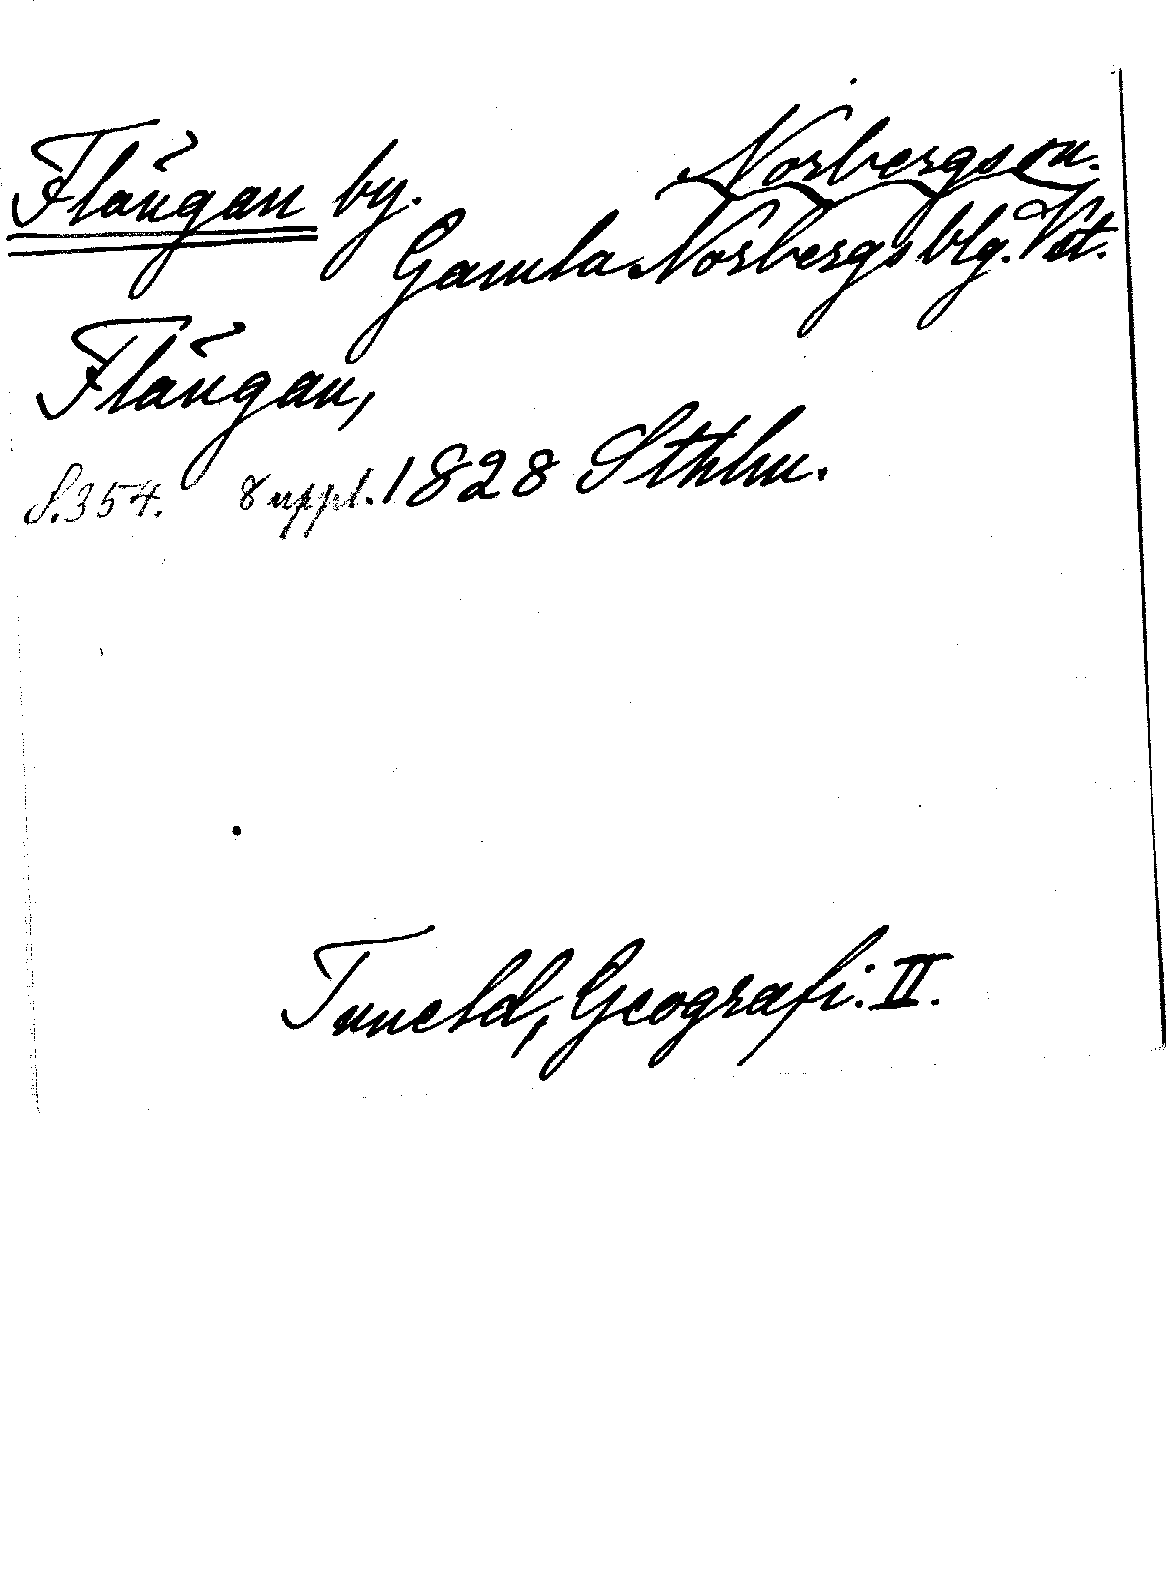 Flängan by. Norbergs sn.
Gamla Norbergs blg. Vst.
Flängan,
S. 354. 8 uppl. 1828 Sthlm.
Tuneld, Geografi. II.